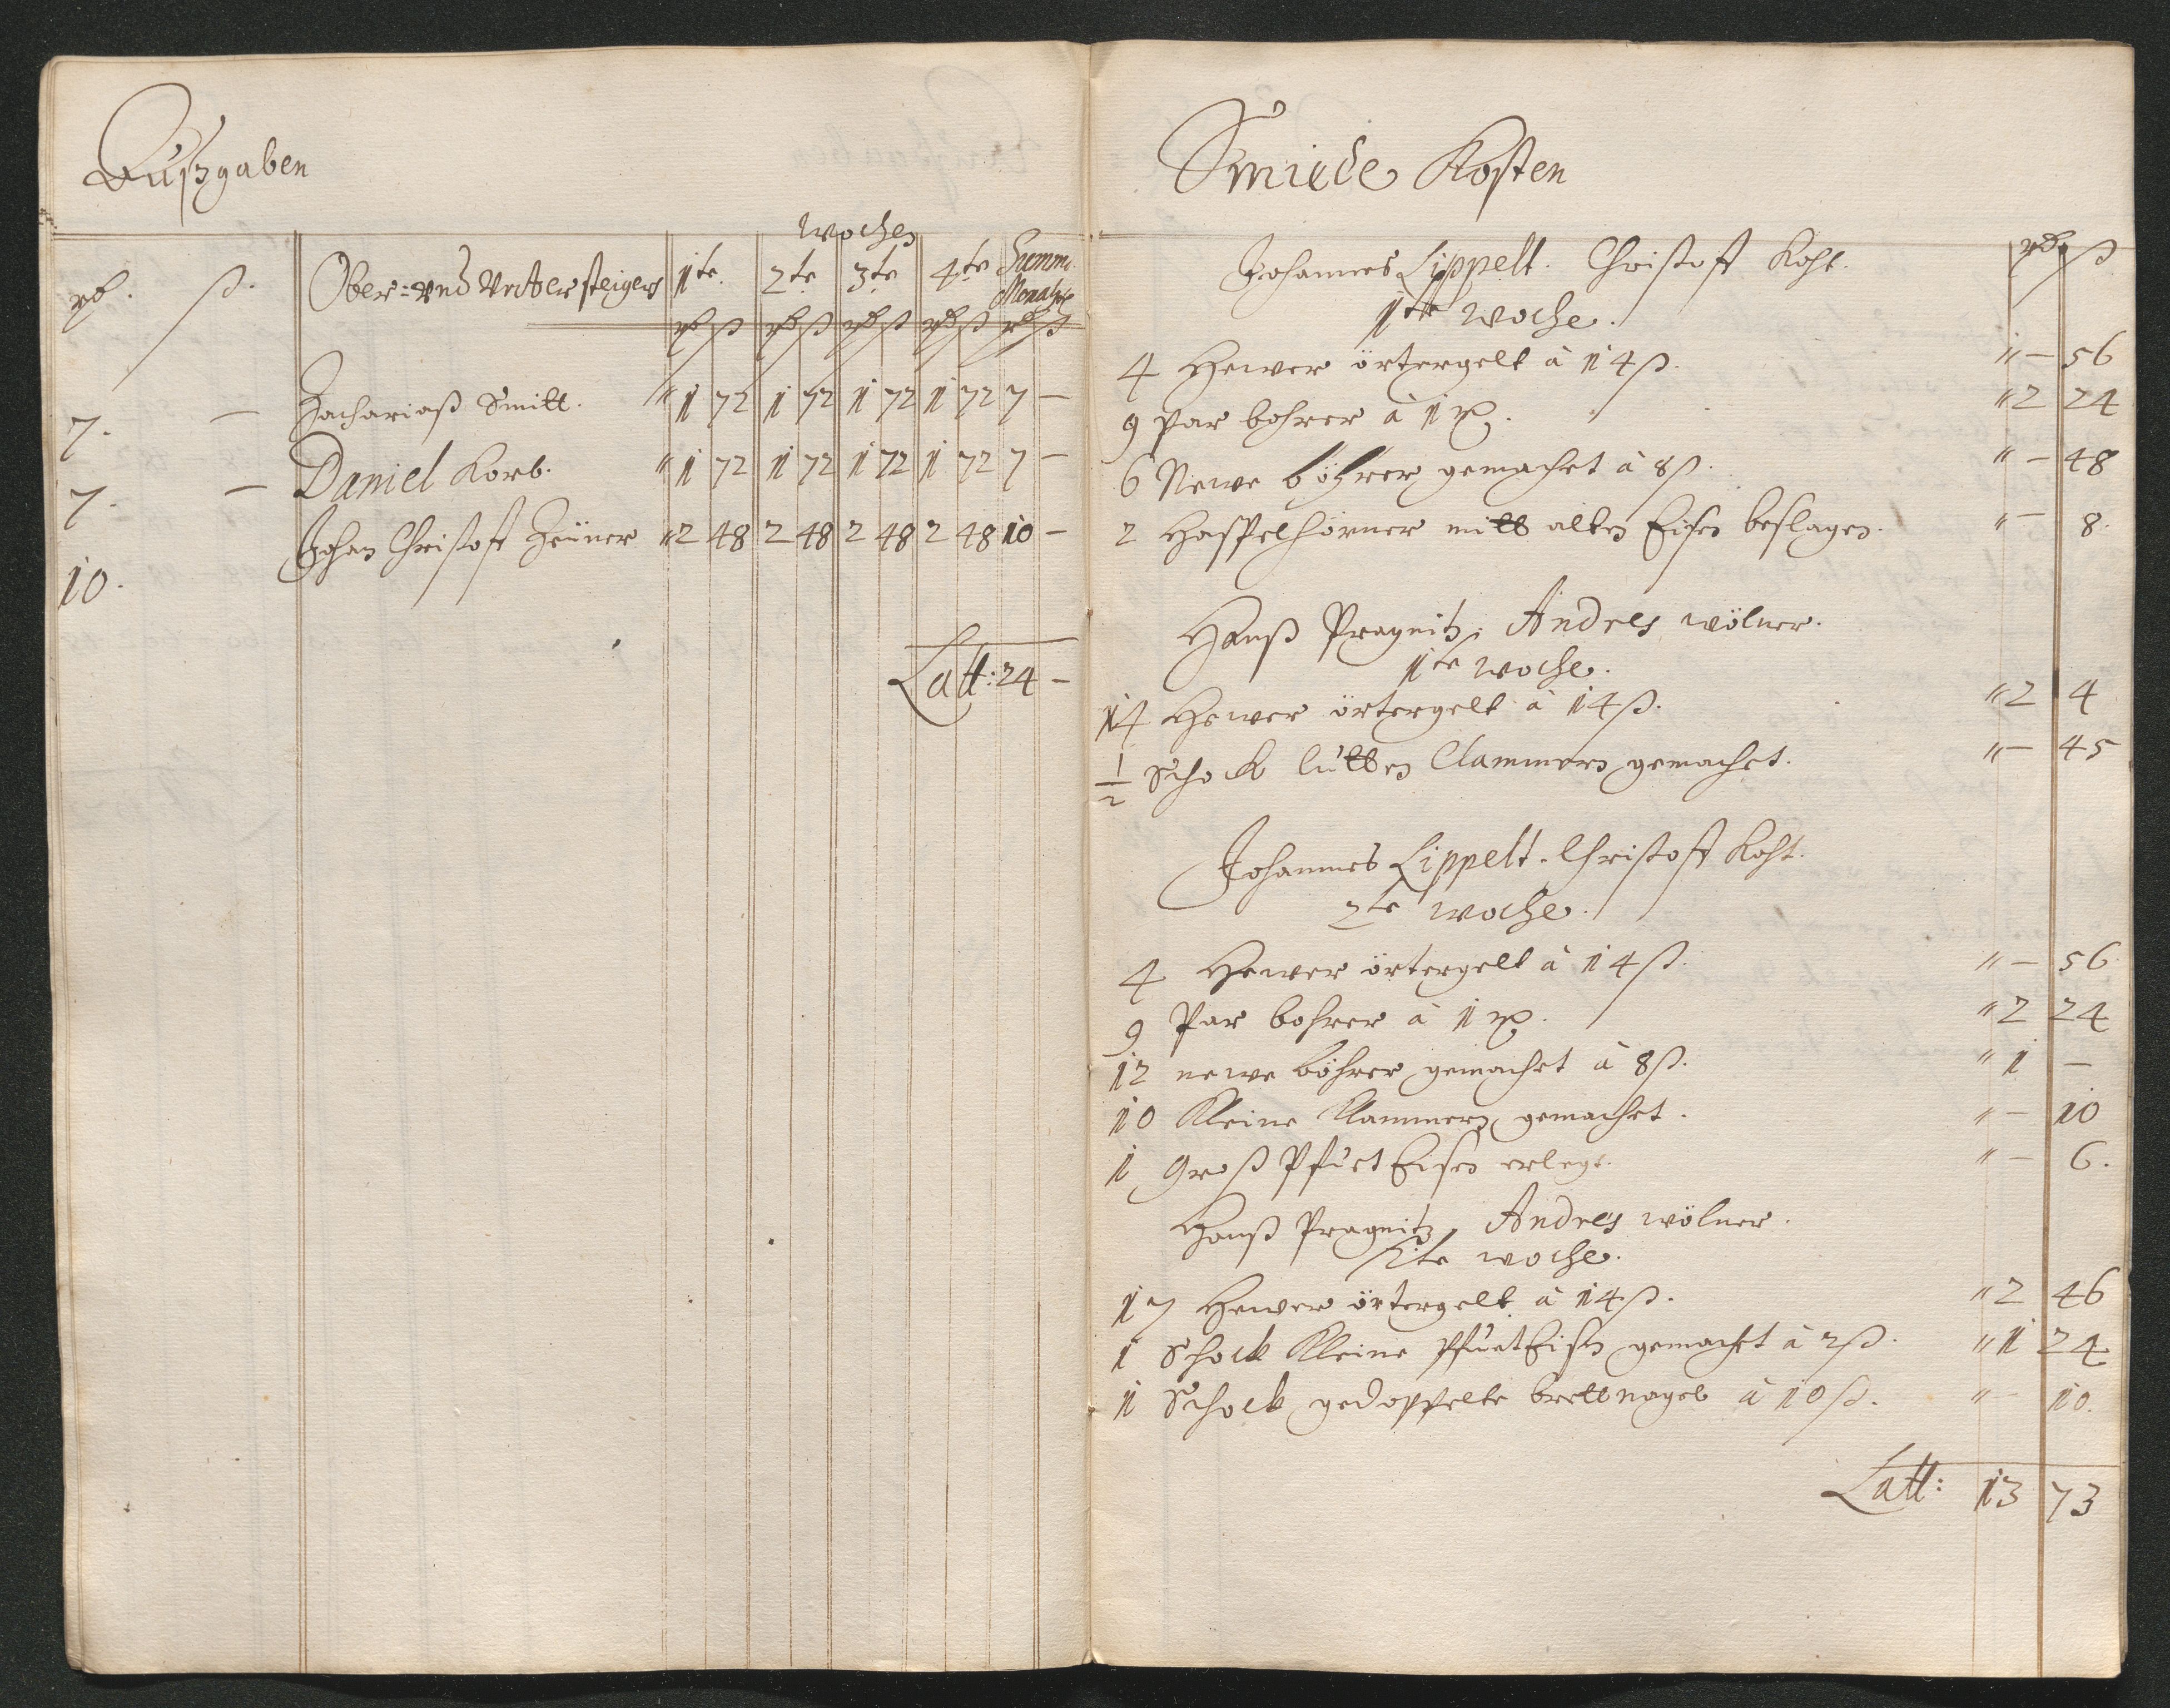 Außgaben
Wochen
rd. ß. Ober= und Untersteigers 1te. 2te 3te 4te Summ. Monahts
rd ß rd ß rd ß rd ß rd ß
7. — Zachariaß Smitt. " 1 72 1 72 1 72 1 72 7 —
7. — Daniel Korb. " 1 72 1 72 1 72 1 72 7 —
10. Johan Christoff Zeüner " 2 48 2 48 2 48 2 48 10 —
Latt: 24 —
Smiede Kosten
rd ß
Johannes Lippelt. Christoff Koht.
1te Woche.
4 Hewer örtergelt à 14 ß. " — 56
9 Par bohrer à 1 " 2 24
6 Newe böhrer gemacht à 8 ß. " — 48
2 Haspelhörner mitt alten Eisen beslagen. " — 8.
Hanß Pragnitz. Andres wölner.
1te Woche.
14 Hewer örtergelt à 14 ß. " 2 4
1/2 Schock lutten Clammern gemacht. " — 45
Johannes Lippelt. Christoff Koht.
2te Woche.
4 Hewer örtergelt à 14 ß. " — 56
9 Par bohrer à 1 " 2 24
12 newe böhrer gemacht à 8 ß. " 1 —
10 Kleine Klammern gemacht. " — 10
1 Groß Pfuet Eisen erlegt. " — 6.
Hanß Pragnitz. Andres wölner.
2te Woche.
17 Hewer örtergelt à 14 ß. " 2 46
1 Schock Kleine Pfuet Eisen gemacht à 2 ß. " 1 24
1 Schock gedoppelte brettnagel à 10 ß. " — 10.
Latt: 13 73